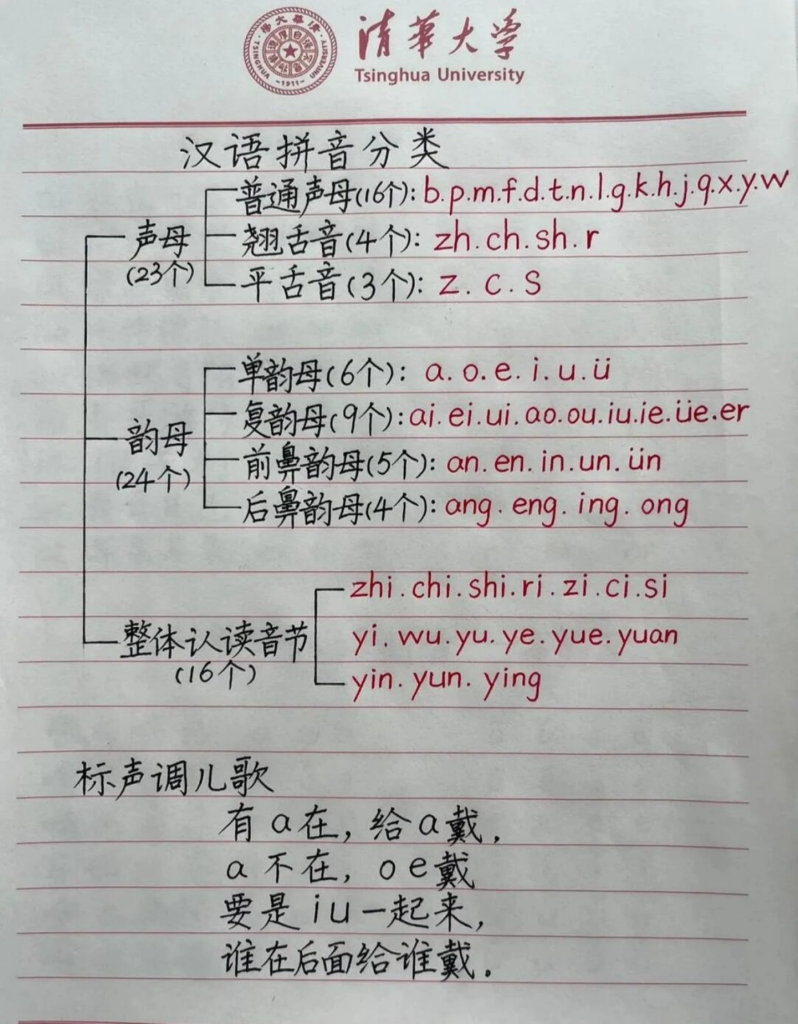 清华大学
Tsinghua University
汉语拼音分类
声母
(23个)
普通声母(16个): b.p.m.f.d.t.n.l.g.k.h.j.q.x.y.w
翘舌音(4个): zh.ch.sh.r
平舌音(3个): z.c.s
韵母
(24个)
单韵母(6个): a.o.e.i.u.ü
复韵母(9个): ai.ei.ui.ao.ou.iu.ie.üe.er
前鼻韵母(5个): an.en.in.un.ün
后鼻韵母(4个): ang.eng.ing.ong
整体认读音节
(16个)
zhi.chi.shi.ri.zi.ci.si
yi.wu.yu.ye.yue.yuan
yin.yun.ying
标声调儿歌
有a在，给a戴，
a不在，oe戴
要是iu一起来，
谁在后面给谁戴．